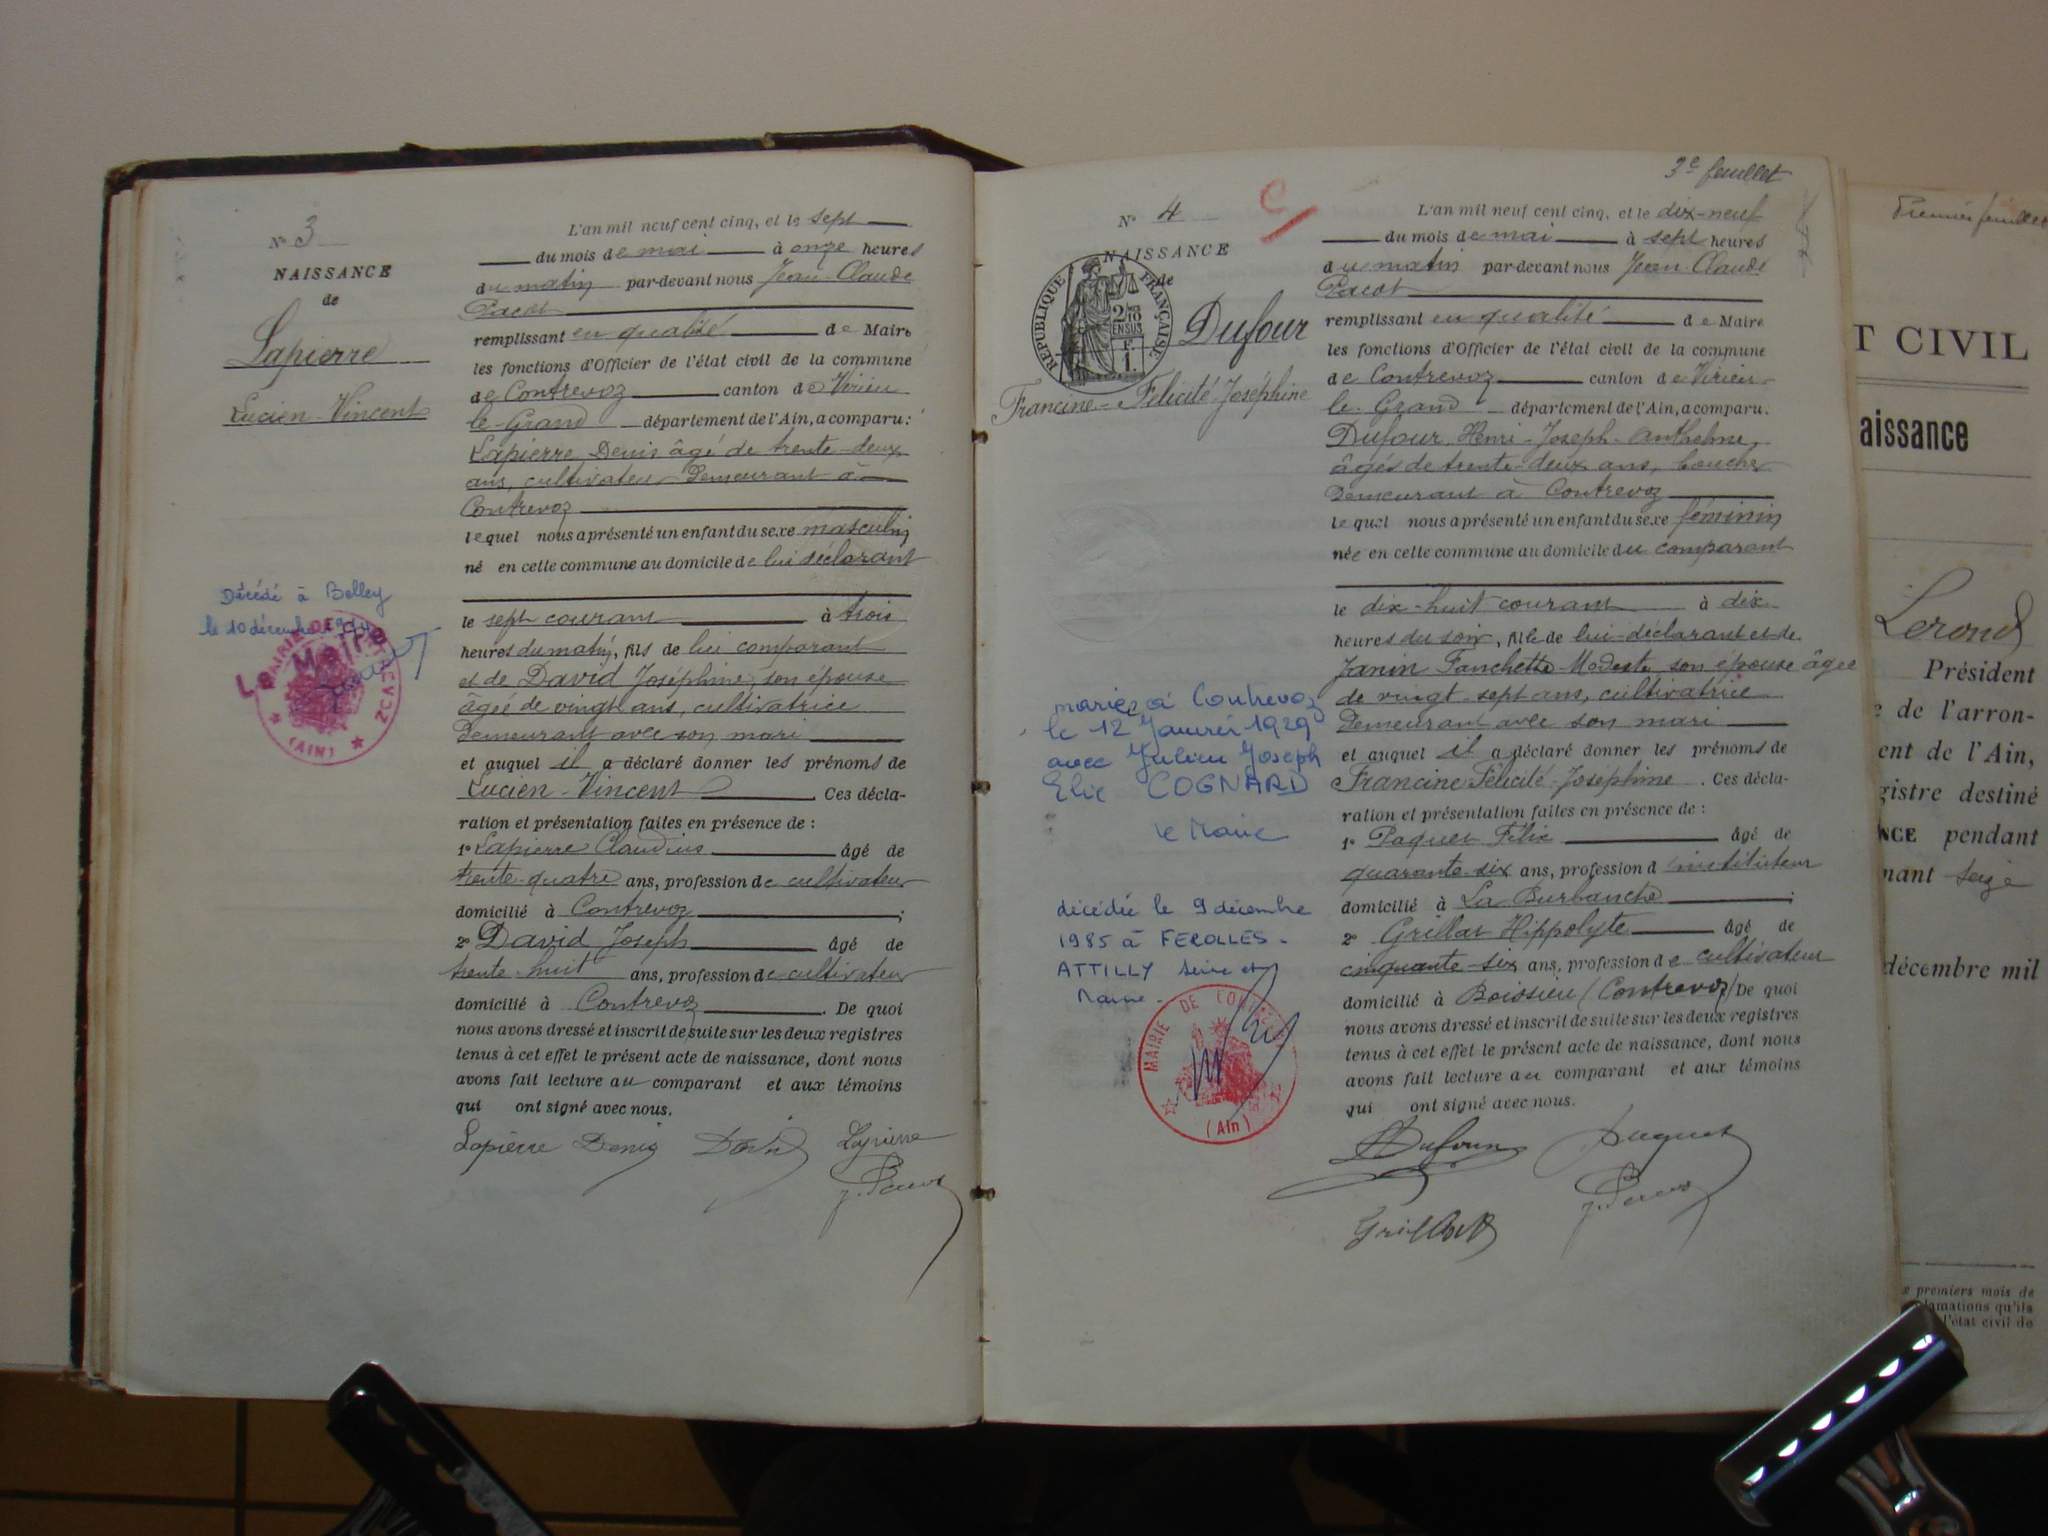 N° 3
NAISSANCE
de
Lapierre
Lucien-Vincent
Décédé à Belley
le 10 décembre
Le Maire
MAIRIE DE CONTREVOZ
(AIN)
L'an mil neuf cent cinq, et le sept
du mois de mai à onze heures
du matin par-devant nous Jean-Claude
Pacot
remplissant en qualité de Maire
les fonctions d'Officier de l'état civil de la commune
de Contrevoz canton de Virieu
le-Grand département de l'Ain, a comparu:
Lapierre Denis âgé de trente-deux
ans, cultivateur Demeurant à
Contrevoz
lequel nous a présenté un enfant du sexe masculin
né en cette commune au domicile de lui déclarant
le sept courant à trois
heures du matin, fils de lui comparant
et de David Joséphine, son épouse
âgée de vingt ans, cultivatrice
Demeurant avec son mari
et auquel il a déclaré donner les prénoms de
Lucien-Vincent. Ces décla-
ration et présentation faites en présence de :
1° Lapierre Claudius âgé de
trente-quatre ans, profession de cultivateur
domicilié à Contrevoz ;
2° David Joseph âgé de
trente-huit ans, profession de cultivateur
domicilié à Contrevoz. De quoi
nous avons dressé et inscrit de suite sur les deux registres
tenus à cet effet le présent acte de naissance, dont nous
avons fait lecture au comparant et aux témoins
qui ont signé avec nous.
Lapierre Denis David Lapierre
J. Pacot
3e feuillet
N° 4
NAISSANCE
de
REPUBLIQUE FRANÇAISE
2/10 EN SUS
F.
1.
Dufour
Francine-Félicité-Joséphine
mariée à Contrevoz
le 12 Janvier 1929
avec Julien Joseph
Elie COGNARD
le Maire
décédée le 9 décembre
1985 à FEROLLES-
ATTILLY Seine et
Marne.
MAIRIE DE CONTREVOZ
(AIn)
L'an mil neuf cent cinq, et le dix-neuf
du mois de mai à sept heures
du matin par-devant nous Jean-Claude
Pacot
remplissant en qualité de Maire
les fonctions d'Officier de l'état civil de la commune
de Contrevoz canton de Virieu-
le-Grand département de l'Ain, a comparu.
Dufour Henri-Joseph-Anthelme,
âgés de trente-deux ans, boucher
Demeurant à Contrevoz
lequel nous a présenté un enfant du sexe féminin
née en cette commune au domicile du comparant
le dix-huit courant à dix
heures du soir, fille de lui déclarant et de
Janin Fanchette-Modeste son épouse âgée
de vingt-sept ans, cultivatrice
Demeurant avec son mari
et auquel il a déclaré donner les prénoms de
Francine Félicité-Joséphine. Ces décla-
ration et présentation faites en présence de :
1° Paquet Félix âgé de
quarante-six ans, profession d'instituteur
domicilié à La Burbanche ;
2° Grillat Hippolyte âgé de
cinquante-six ans, profession de cultivateur
domicilié à Boissieu (Contrevoz) De quoi
nous avons dressé et inscrit de suite sur les deux registres
tenus à cet effet le présent acte de naissance, dont nous
avons fait lecture au comparant et aux témoins
qui ont signé avec nous.
Dufour Paquet
J. Pacot
Grillat
Premier feuillet
T CIVIL
aissance
Lerond
Président
e de l'arron-
ent de l'Ain,
gistre destiné
NCE pendant
nant seize
décembre mil
premiers mois de
lamations qu'ils
l'état civil de